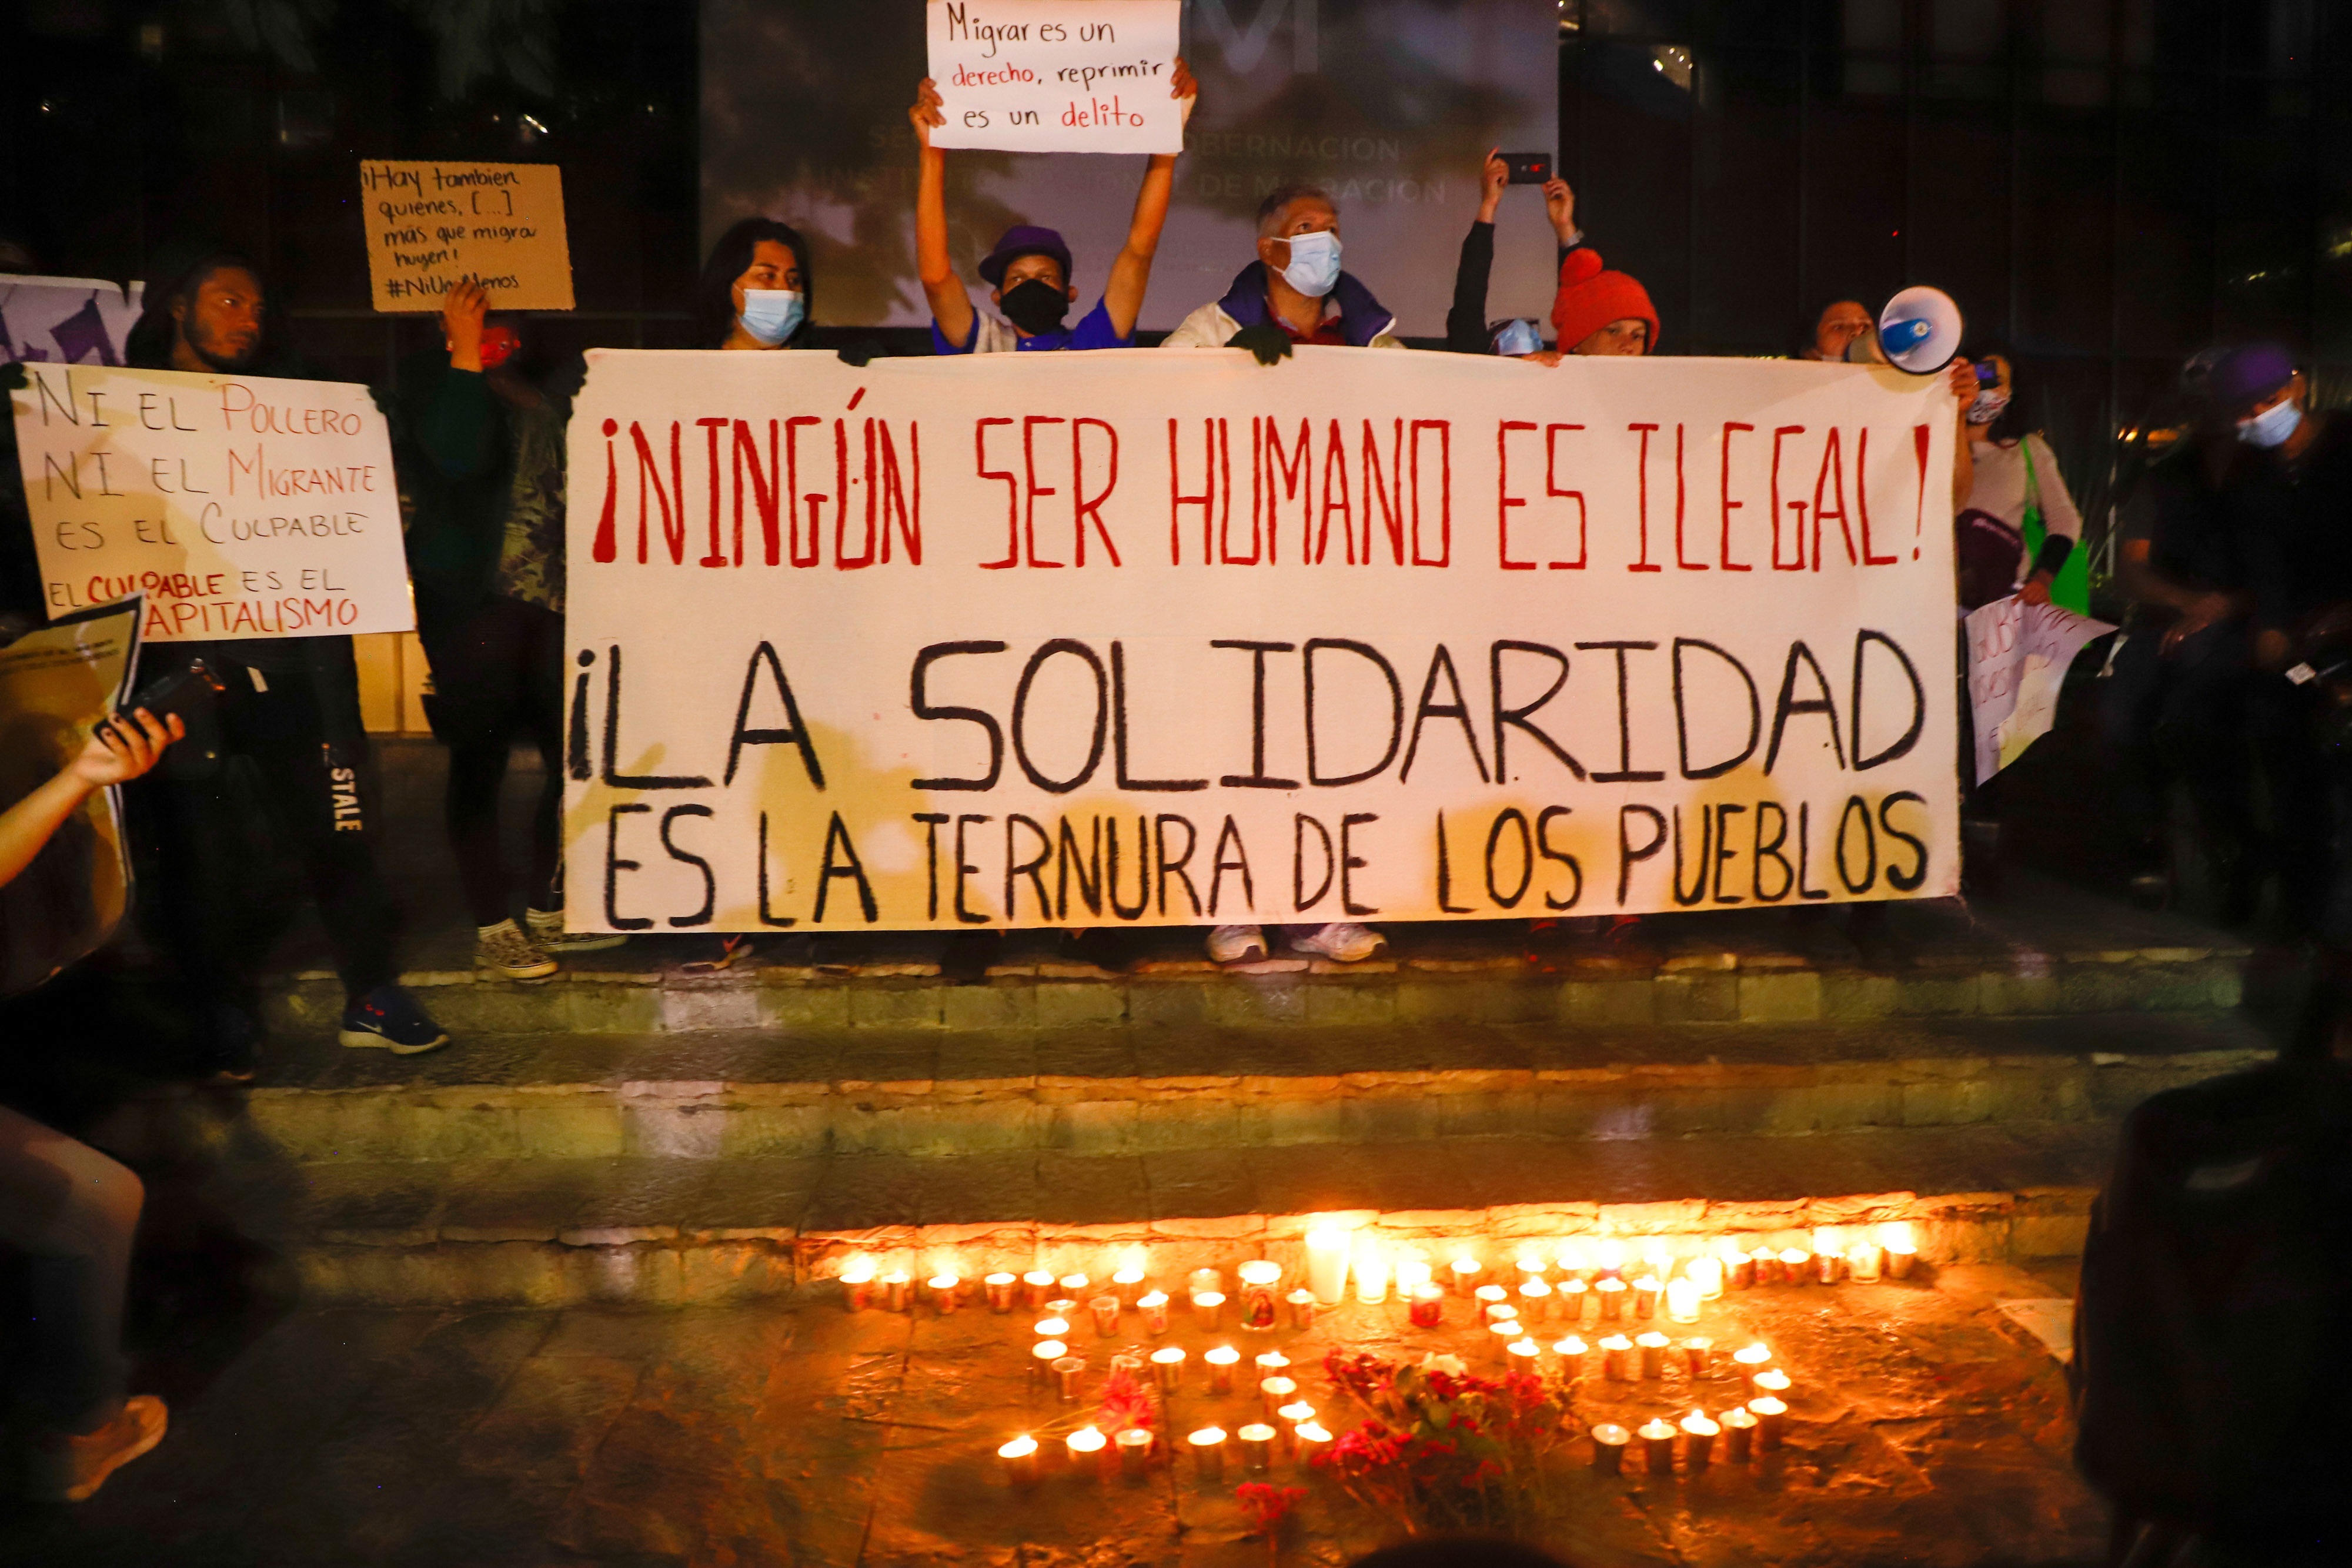 Migrar es un
derecho, reprimir
es un delito
¡Hay tambien
quienes, [...]
más que migra
huyen!
OBERNACIÓN
DE MIGRACIÓN
NI EL POLLERO
NI EL MIGRANTE
ES EL CULPABLE
EL CULPABLE ES EL
APITALISMO
¡NINGÚN SER HUMANO ES ILEGAL!
¡LA SOLIDARIDAD
ES LA TERNURA DE LOS PUEBLOS
STALE